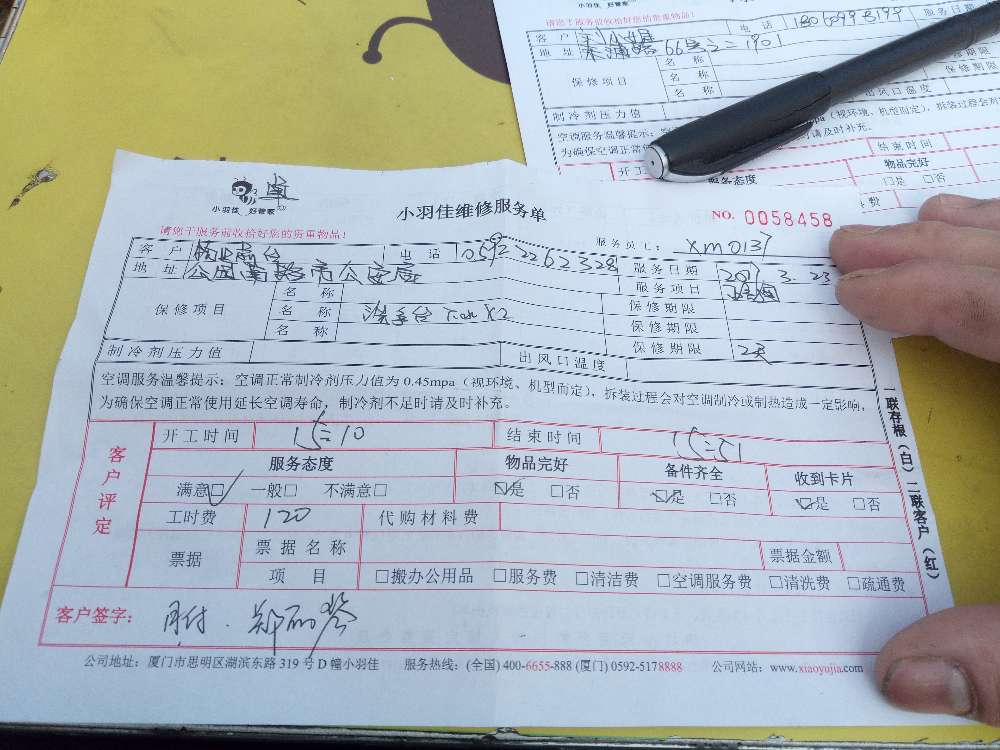 小羽佳 好管家
请您于服务前收拾好您的贵重物品!
客户 电话 服务日期
地址 66号之二1901
名称
保修项目 名称 保修期限
名称 出风口温度
制冷剂压力值
空调服务温馨提示:空 mpa(视环境、机型而定),拆装过程会对
为确保空调正常使 请及时补充。
结束时间
开工 物品完好
服务态度 □是 □否
小羽佳 好管家
小羽佳维修服务单
NO. 0058458
请您于服务前收拾好您的贵重物品!
服务员工: XM0137
客户 物业前台 电话 0592 2262328 服务日期 2017.3.23
地址 公园南路市公安局 服务项目
名称 保修期限
保修项目 名称 洗手台 X2 保修期限
名称 保修期限 2天
制冷剂压力值 出风口温度
空调服务温馨提示:空调正常制冷剂压力值为 0.45mpa(视环境、机型而定),拆装过程会对空调制冷或制热造成一定影响,
为确保空调正常使用延长空调寿命,制冷剂不足时请及时补充。
一联存根(白)二联客户(红)
客户评定
开工时间 15=10 结束时间 15=51
服务态度 物品完好 备件齐全 收到卡片
满意□ 一般□ 不满意□ □是 □否 □是 □否 □是 □否
工时费 120 代购材料费
票据 票据名称 票据金额
项目 □搬办公用品 □服务费 □清洁费 □空调服务费 □清洗费 □疏通费
客户签字: 月付.郑丽琴
公司地址:厦门市思明区湖滨东路 319 号 D 幢小羽佳 服务热线:(全国) 400-6655-888 (厦门) 0592-5178888 公司网站:www.xiaoyujia.com